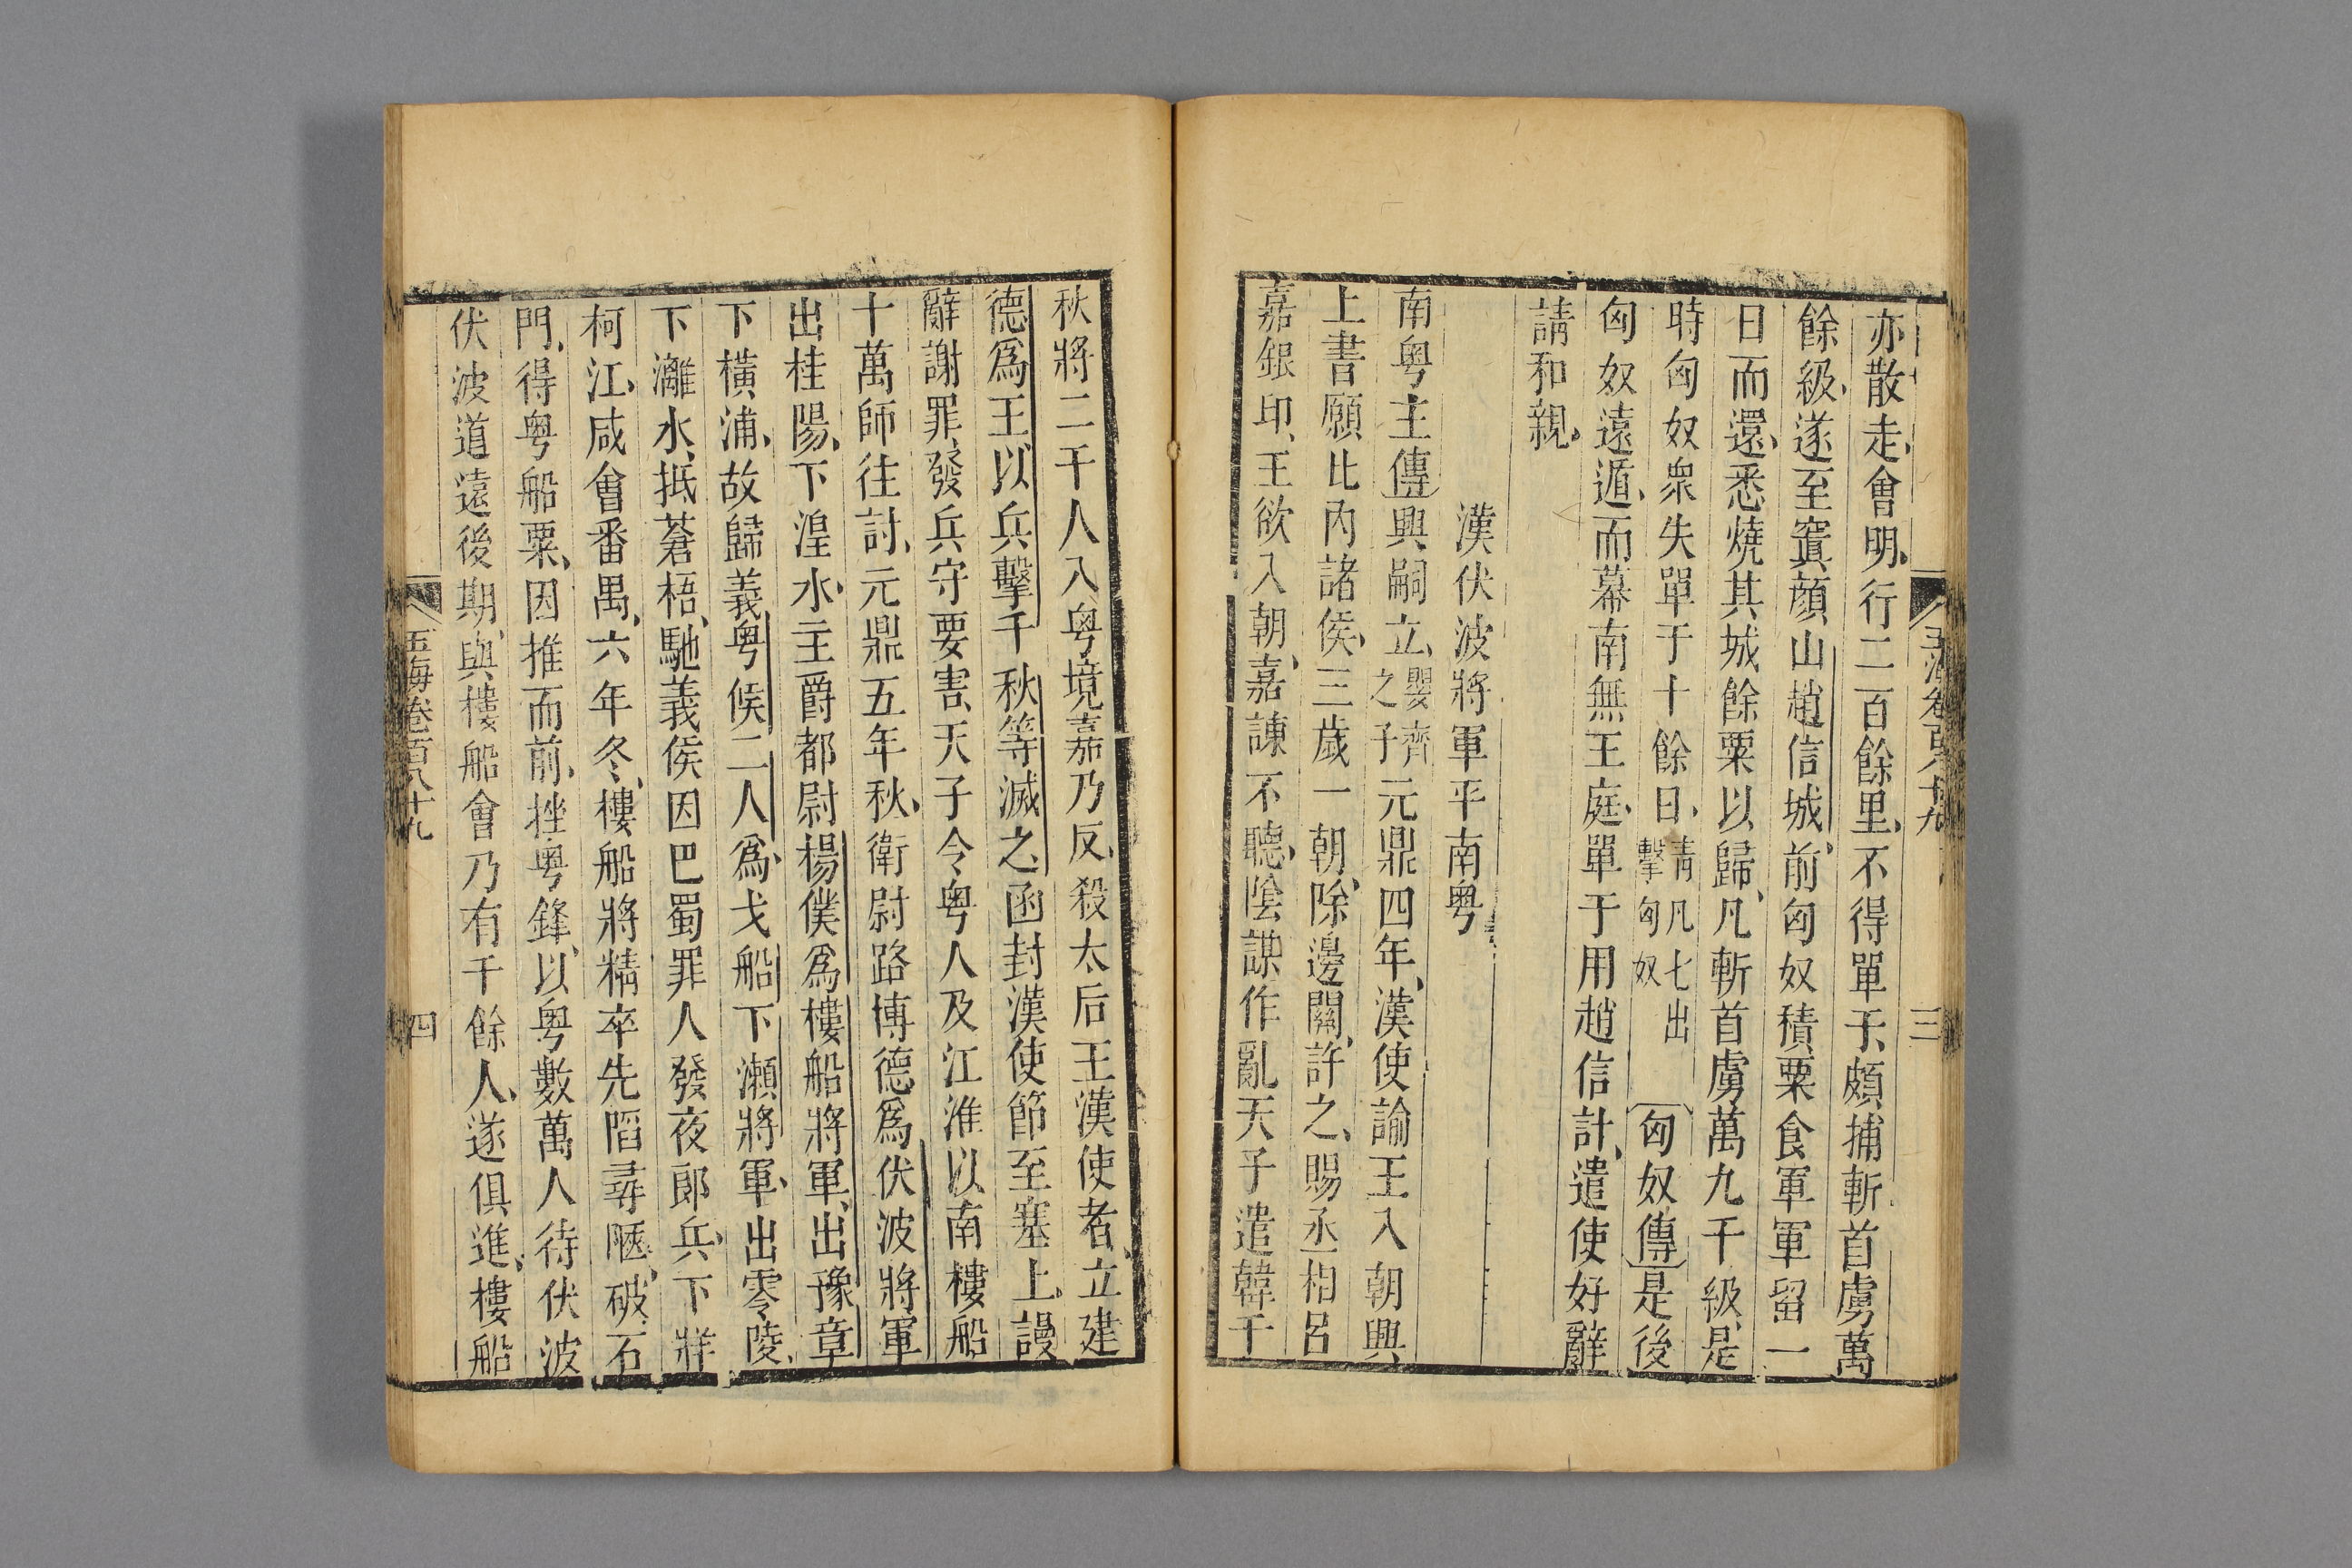 亦散走會明行二百餘里不得單于頗捕斬首虜萬
餘級遂至窴顔山趙信城前匈奴積粟食軍軍留一
日而還悉燒其城餘粟以歸凡斬首虜萬九千級是
時匈奴衆失單于十餘日青凡七出擊匈奴匈奴傳是後
匈奴遠遁而幕南無王庭單于用趙信計遣使好辭
請和親
漢伏波將軍平南粤
南粤主傳興嗣立嬰齊之子元鼎四年漢使諭王入朝興
上書願比内諸侯三歲一朝除邊關許之賜丞相呂
嘉銀印王欲入朝嘉諫不聽陰謀作亂天子遣韓千
玉海卷百八十九
三
秋將二千人入粤境嘉乃反殺太后王漢使者立建
德爲王以兵擊千秋等滅之函封漢使節至塞上謾
辭謝罪發兵守要害天子令粤人及江淮以南樓船
十萬師往討元鼎五年秋衛尉路博德爲伏波將軍
出桂陽下湟水主爵都尉楊僕爲樓船將軍出豫章
下橫浦故歸義粤侯二人爲戈船下瀬將軍出零陵
下灕水抵蒼梧馳義侯因巴蜀罪人發夜郎兵下牂
柯江咸會番禺六年冬樓船將精卒先陷尋陿破石
門得粤船粟因推而前挫粤鋒以粤數萬人待伏波
伏波道遠後期與樓船會乃有千餘人遂俱進樓船
玉海卷百八十九
四